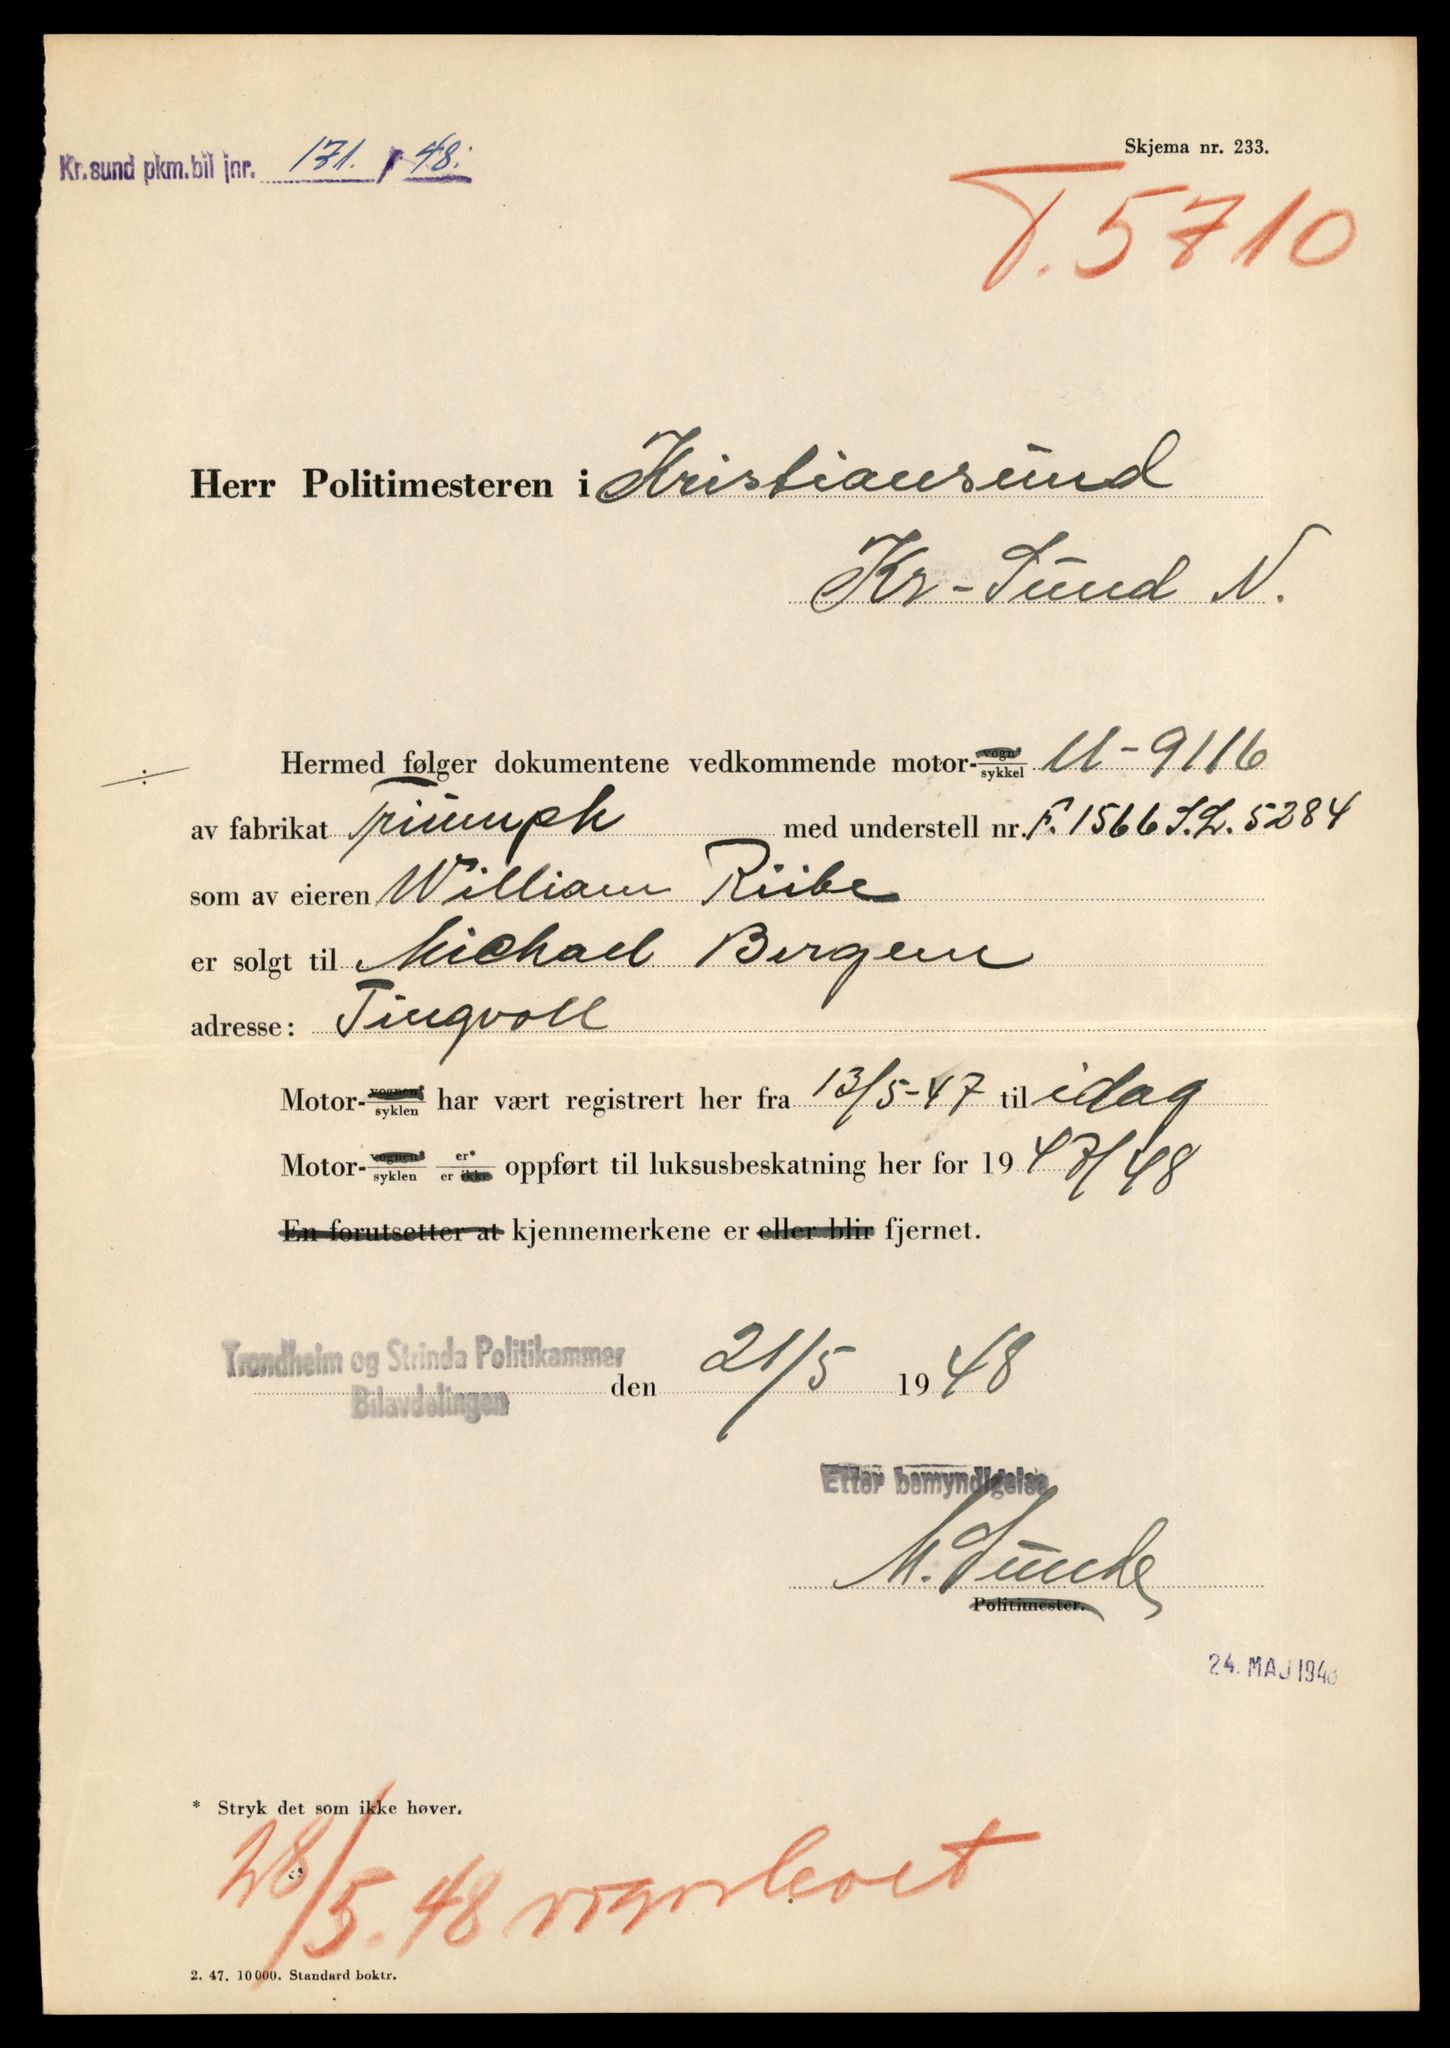 Kr.sund pkm.bil jnr. 171. / 48.
Skjema nr. 233.
T. 5710
Herr Politimesteren i Kristiansund
Kr-Sund N.
Hermed følger dokumentene vedkommende motor-vogn*/sykkel U-9116
av fabrikat Triumph med understell nr. F. 1566 S.L. 5284
som av eieren William Riibe
er solgt til Michael Bergem
adresse: Tingvoll
Motor-vognen*/syklen har vært registrert her fra 13/5-47 til idag
Motor-vognen*/syklen er*/er ikke oppført til luksusbeskatning her for 1947/48
En forutsetter at kjennemerkene er eller blir fjernet.
Trondheim og Strinda Politikammer
Bilavdelingen
den 21/5 1948
Etter bemyndigelse
Politimester.
24. MAJ 1948
* Stryk det som ikke høver.
28/5.48 vognkort
2. 47. 10000. Standard boktr.